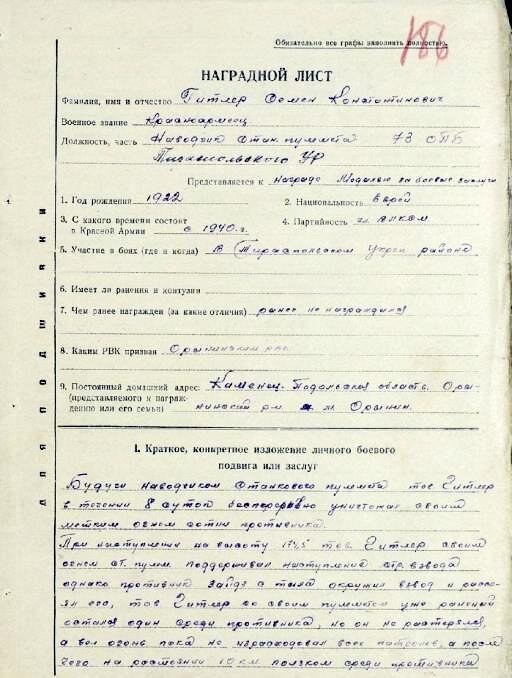 186
Обязательно все графы заполнить полностью.
НАГРАДНОЙ ЛИСТ
Фамилия, имя и отчество Гитлер Семен Константинович
Военное звание Красноармеец
Должность, часть Наводчик стан. пулмета 73 ОПБ
Тираспольского УР
Представляется к награде Медалью за боевые заслуги
1. Год рождения 1922 2. Национальность еврей
3. С какого времени состоит
в Красной Армии с 1940 г. 4. Партийность чл. ВЛКСМ
5. Участие в боях (где и когда) В Тираспольском Укреп районе
6. Имеет ли ранения и контузии
7. Чем ранее награжден (за какие отличия) ранее не награждался
8. Каким РВК призван Орынинским рвк
9. Постоянный домашний адрес: Каменец-Подольская область. Оры-
(представляемого к награж-
дению или его семьи) нинский р-н м. Орынин
для подшивки
I. Краткое, конкретное изложение личного боевого
подвига или заслуг
Будучи наводчиком станкового пулмета тов Гитлер
в течении 8 суток беспорерывно уничтожал своим
метким огнем сотни противника.
При наступлении на высоту 174,5 тов. Гитлер своим
огнем ст. пулм. поддерживал наступление стр. взвода
однако противник зайдя с тыла окружил взвод и рассе-
ял его, тов Гитлер со своим пулмётом уже раненый
остался один среди противника, но он не растерялся,
а вел огонь пока не израсходовал всех патронов, а после
чего на расстоянии 10 км. ползком среди противника